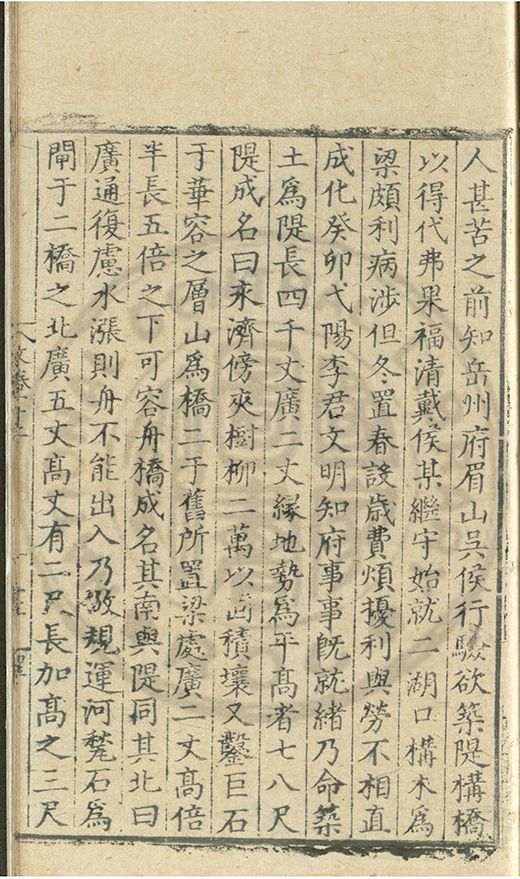 人甚苦之前知岳州府眉山吳侯行驗欲築隄構橋
以得代弗果福清戴侯某繼守始就二湖口構木爲
梁頗利病涉但冬置春設歲費煩擾利與勞不相直
成化癸卯弋陽李君文明知府事事旣就緒乃命築
土爲隄長四千丈廣二丈緣地勢爲平高者七八尺
隄成名曰來濟傍夾樹柳二萬以固積壤又鑿巨石
于華容之層山爲橋二于舊所置梁處廣二丈高倍
半長五倍之下可容舟橋成名其南與隄同其北曰
廣通復慮水漲則舟不能出入乃倣規運河甃石爲
閘于二橋之北廣五丈高丈有二尺長加高之三尺